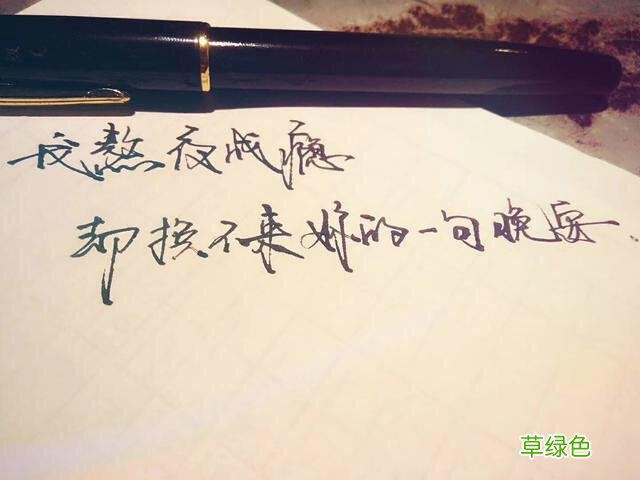 我熬夜成瘾
却换不来妳的一句晚安.
草绿色